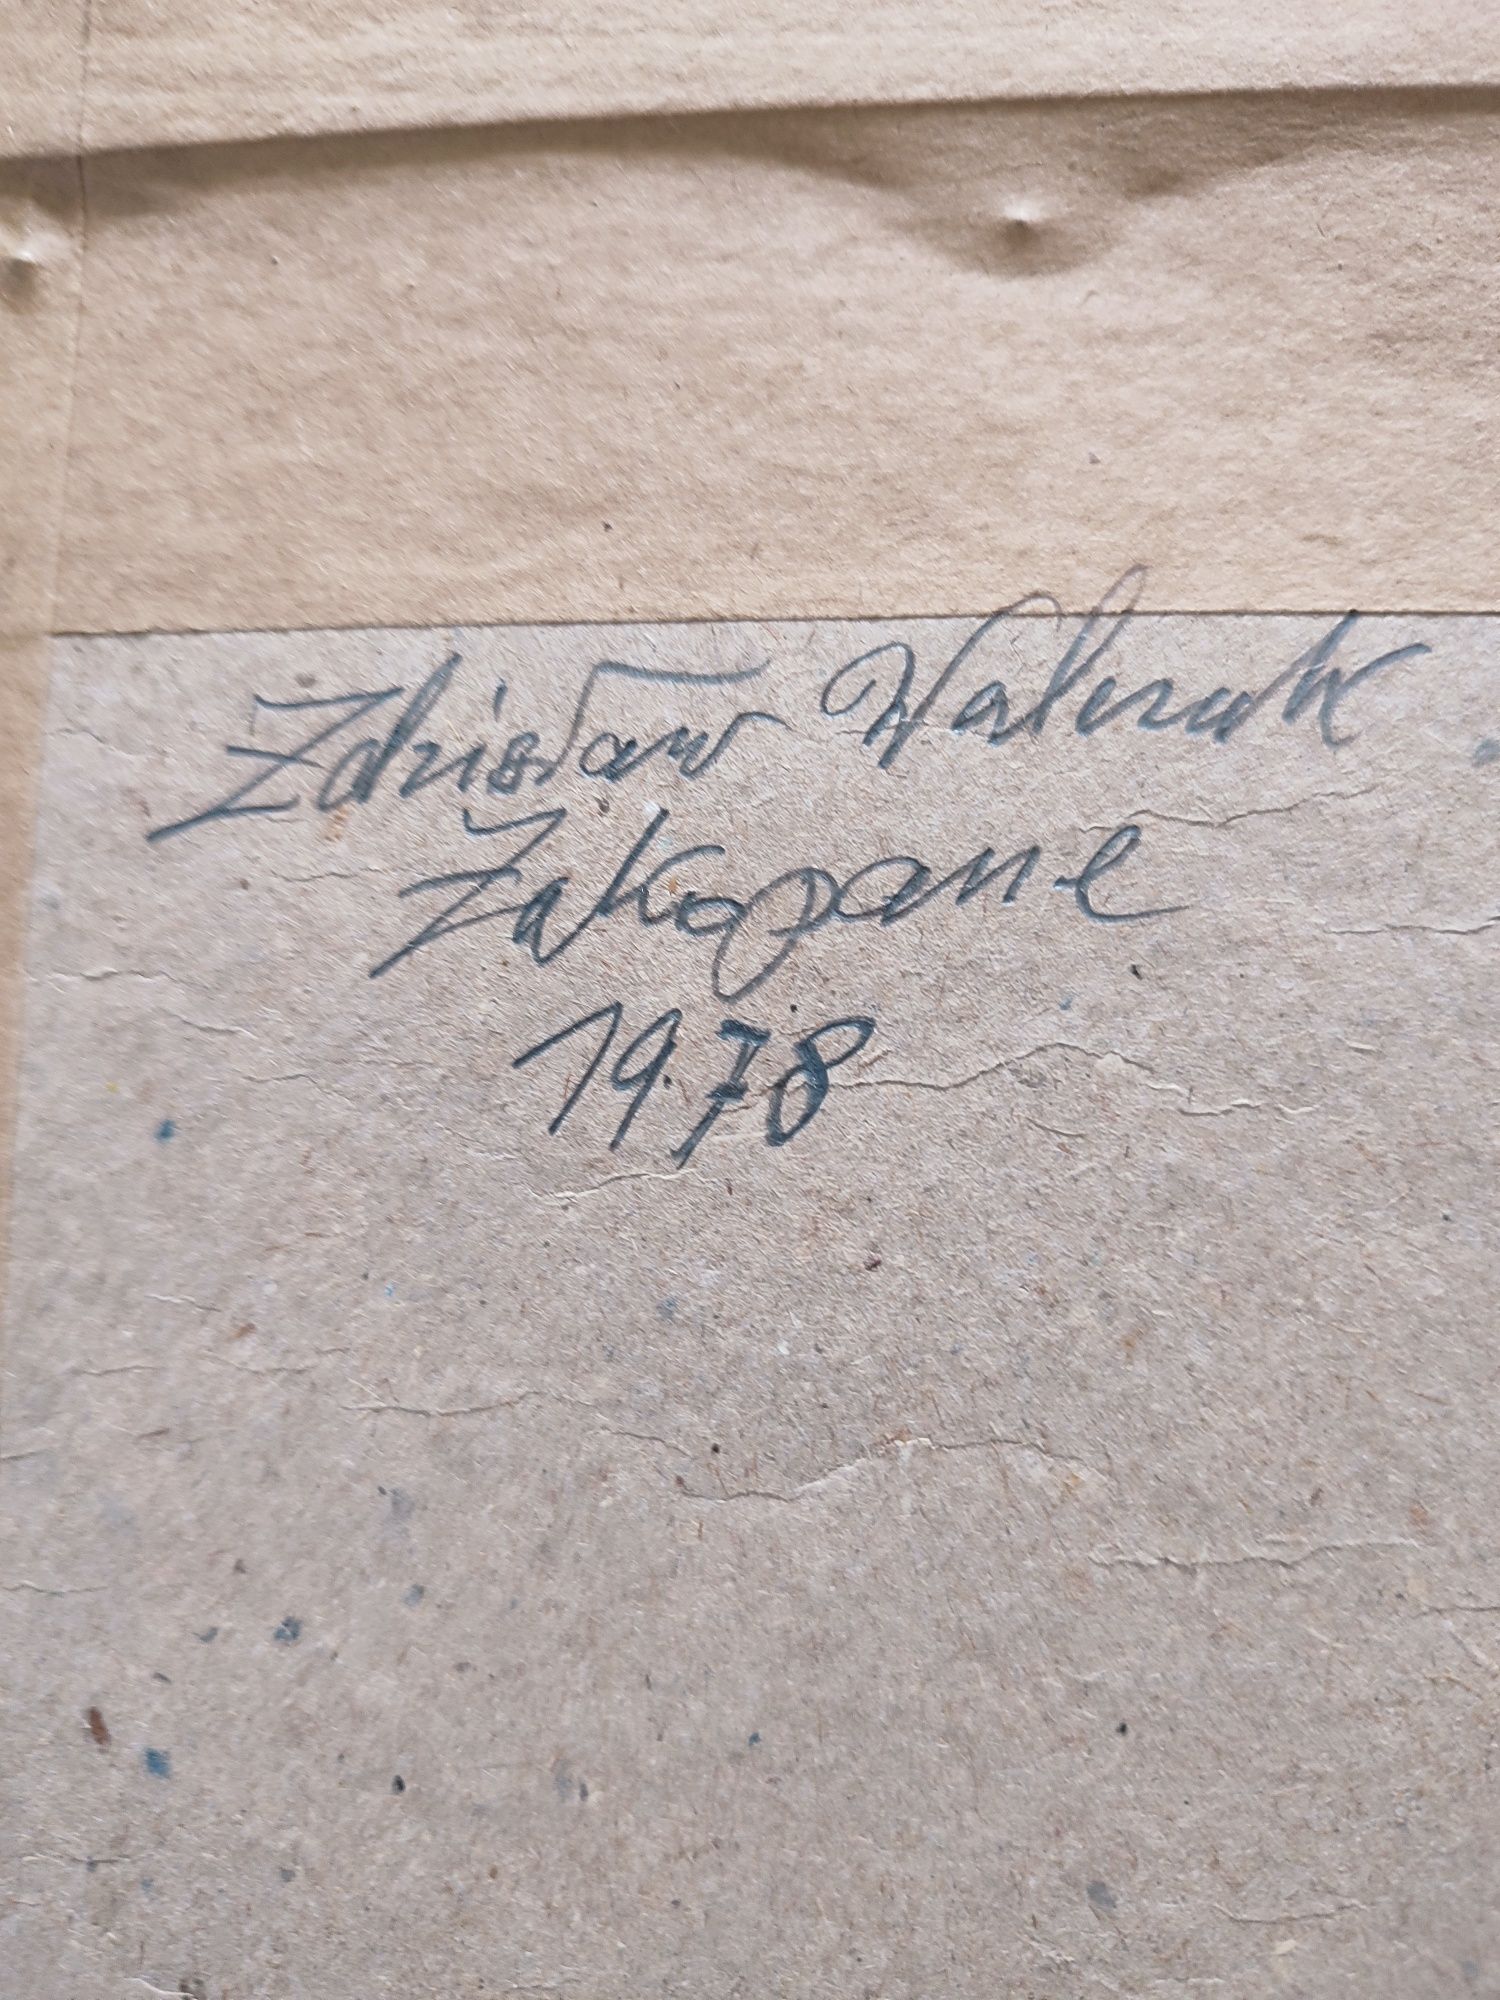 Zdzisław Walczak
Zakopane
1978